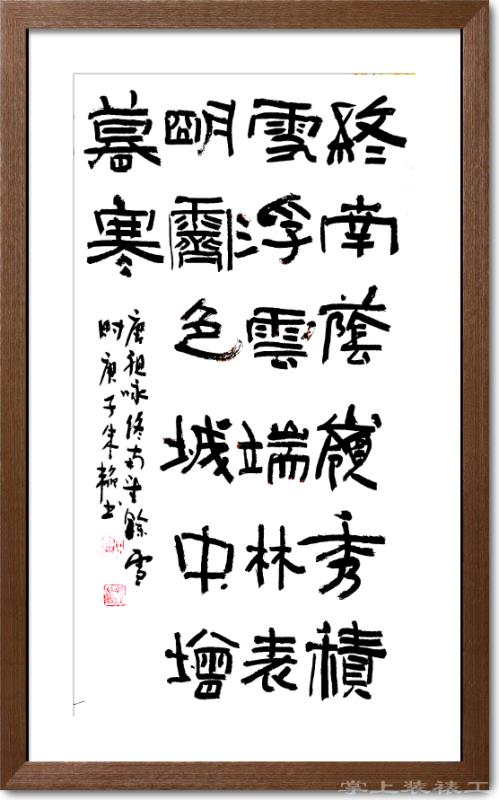 終南蔭嶺秀積
雪浮雲端林表
朙霽色城中增
暮寒
唐祖咏终南望餘雪
时庚子朱书
掌上装裱工